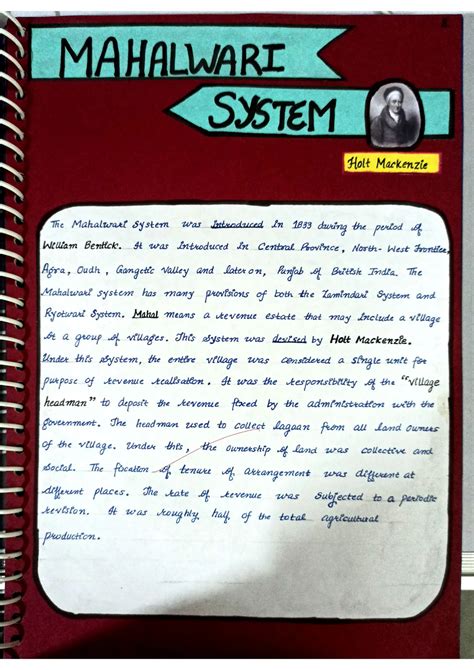 MAHALWARI
SYSTEM
Holt Mackenzie
The Mahalwari System was Introduced in 1833 during the period of
William Bentick. It was Introduced in Central Province, North-West Frontier,
Agra, Oudh, Gangetic Valley and later on, Punjab of British India. The
Mahalwari system has many provisions of both the Zamindari System and
Ryotwari System. Mahal means a revenue estate that may include a village
or a group of villages. This system was devised by Holt Mackenzie.
Under this system, the entire village was considered a single unit for
purpose of revenue realisation. It was the responsibility of the "village
headman" to deposit the revenue fixed by the administration with the
government. The headman used to collect lagaan from all land owners
of the village. Under this, the ownership of land was collective and
social. The fixation of tenure of arrangement was different at
different places. The rate of revenue was subjected to a periodic
revision. It was roughly half of the total agricultural
production.